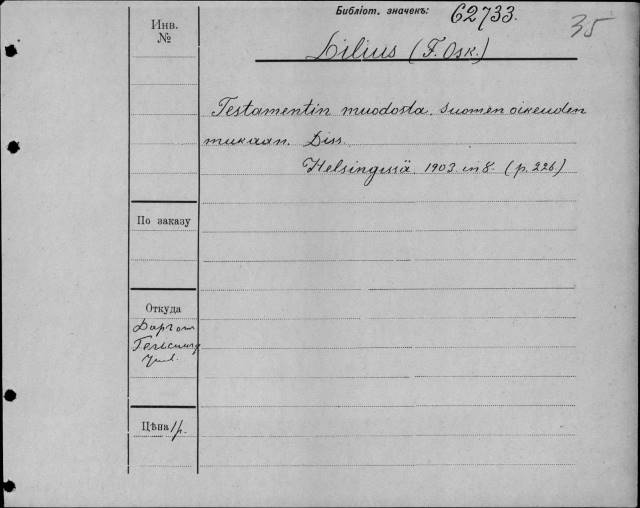 Библіот. значекъ: 62733.
35
Инв.
№
Lilius (F. Osk.)
Testamentin muodosta. Suomen oikeuden
mukaan. Diss.
Helsingissä. 1903. in 8. (p. 226)
По заказу
Откуда
Цѣна 1 р.